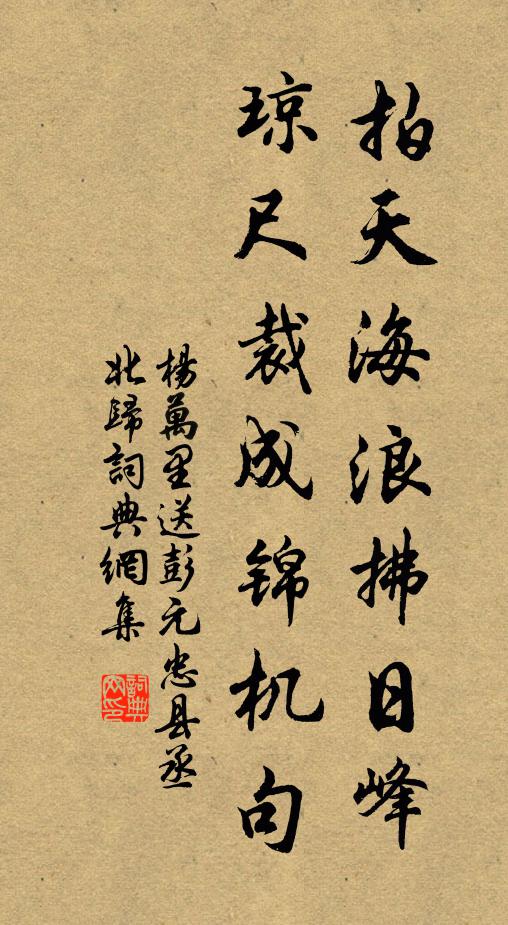 拍天海浪拂日峰
琼尺裁成锦机句
楊萬里送彭元忠县丞
北歸詞典網集
詞典